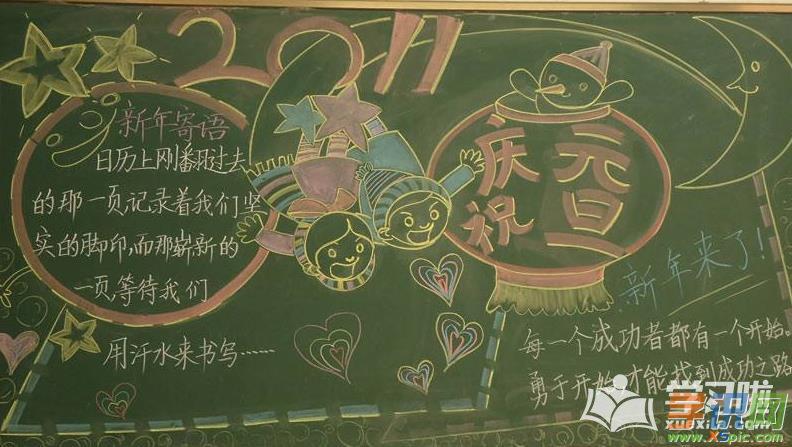 2011
新年寄语
日历上刚翻过去
的那一页记录着我们坚
实的脚印,而那崭新的
一页等待我们
用汗水来书写……
庆祝
元旦
新年来了!
每一个成功者都有一个开始。
勇于开始,才能找到成功之路
学习啦
xuexila.com
www.X5pic.com